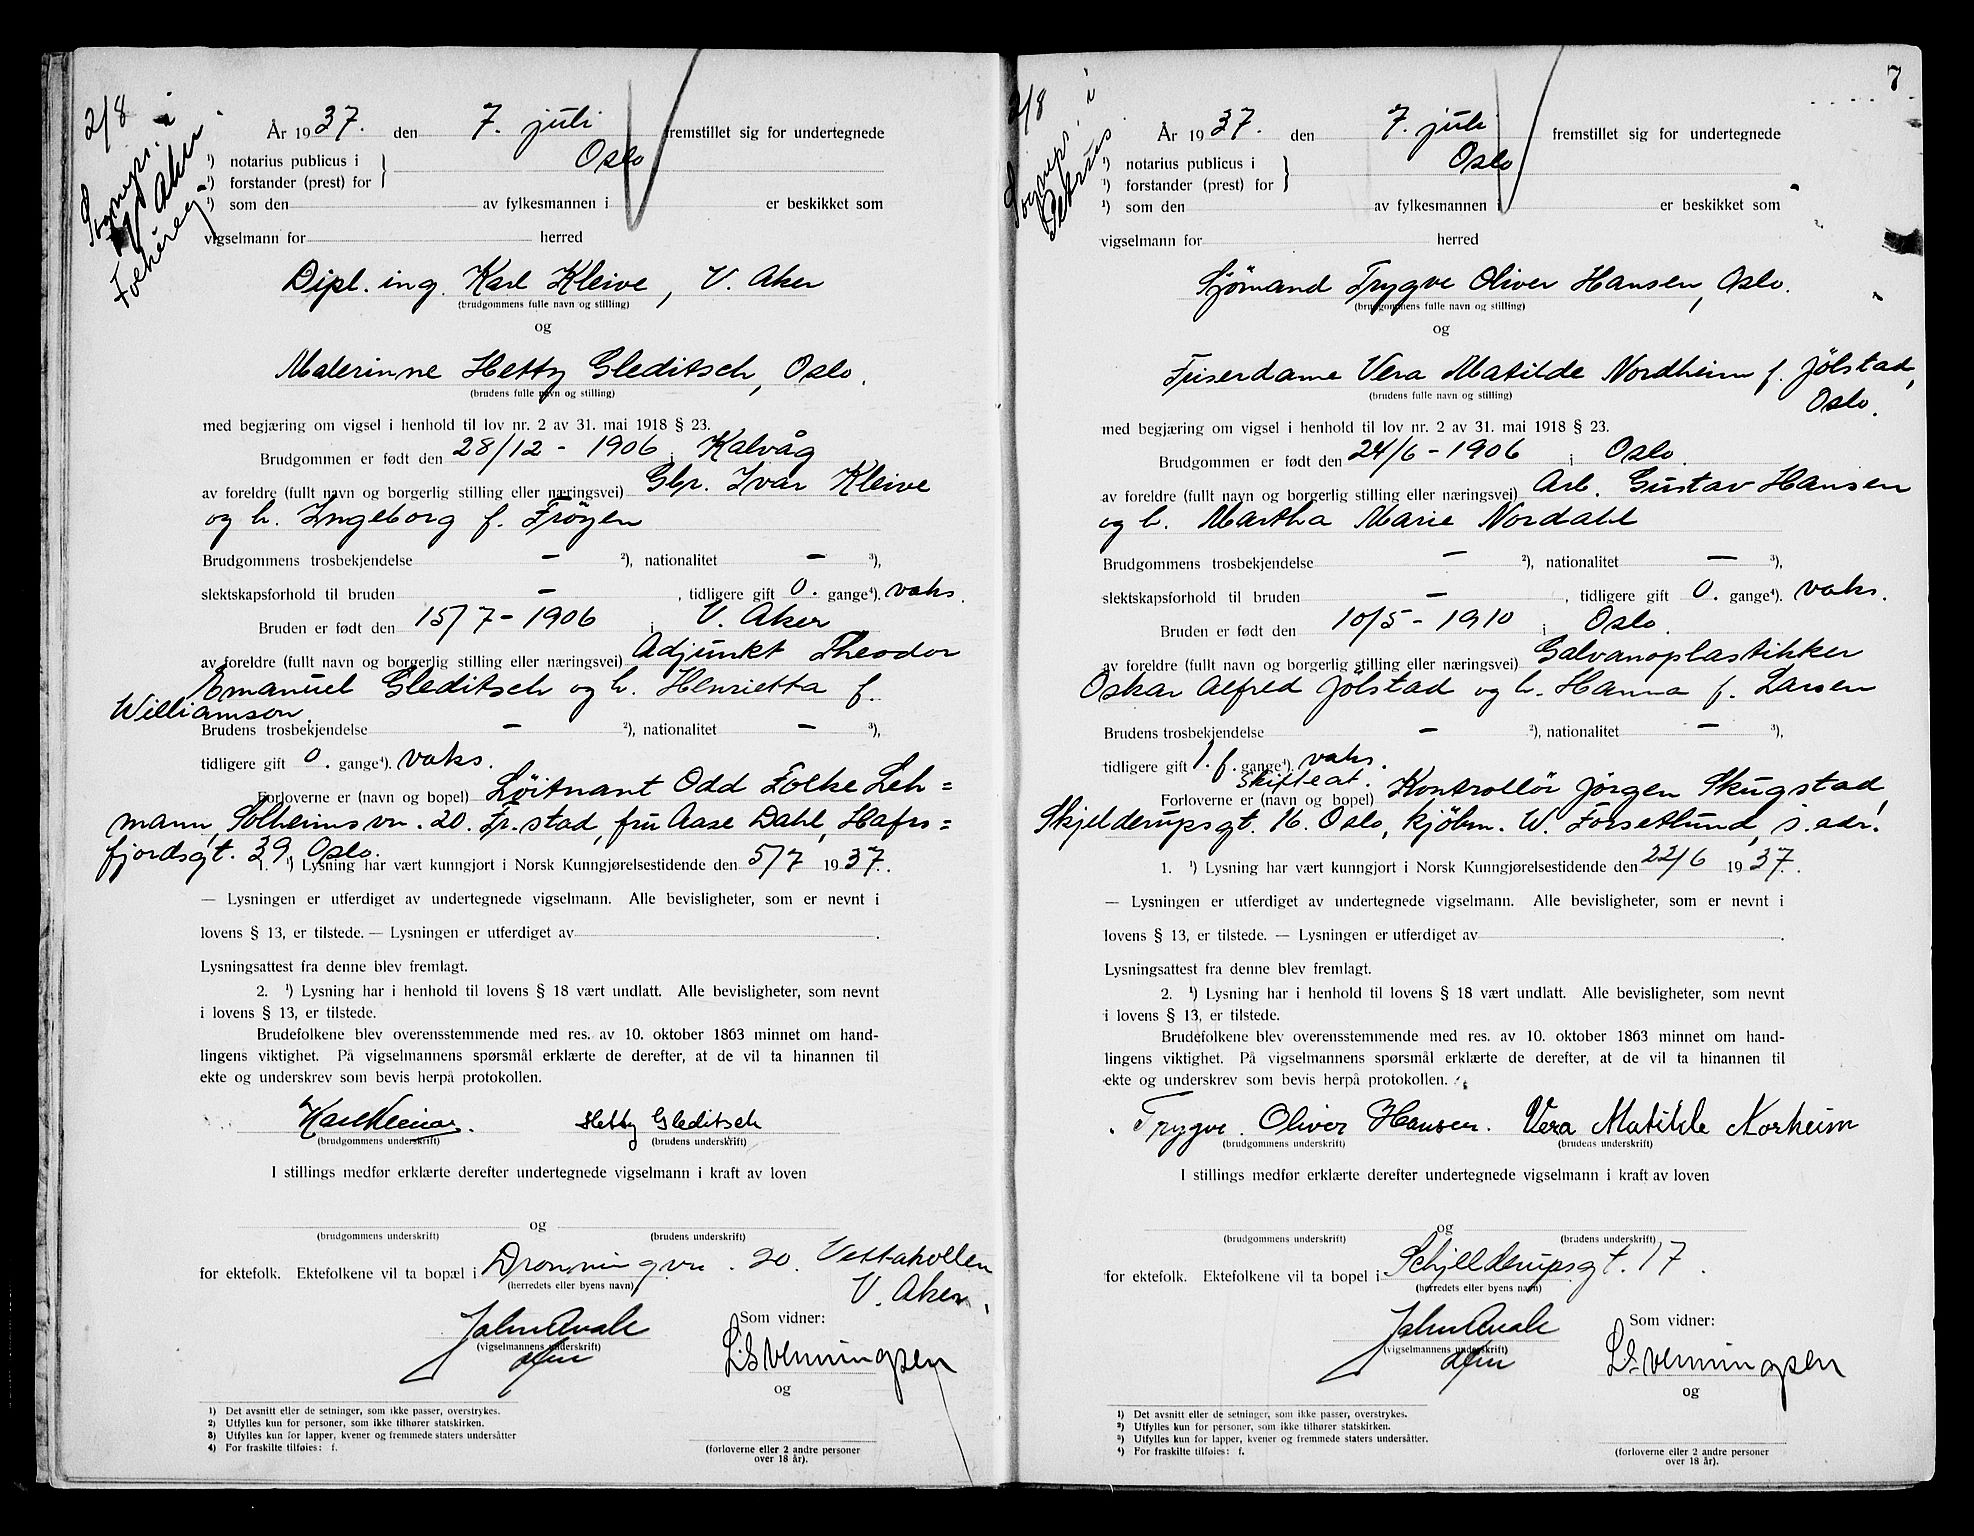 2/8
Sognepr. i
V. Aker
År 1937. den 7. juli fremstillet sig for undertegnede
¹) notarius publicus i
Oslo
¹) forstander (prest) for
¹) som den av fylkesmannen i er beskikket som
vigselmann for herred
Dipl. ing. Karl Kleive, V. Aker
(brudgommens fulle navn og stilling)
og
Malerinne Hetty Gleditsch, Oslo.
(brudens fulle navn og stilling)
med begjæring om vigsel i henhold til lov nr. 2 av 31. mai 1918 § 23.
Brudgommen er født den 28/12 - 1906 i Kalvåg
av foreldre (fullt navn og borgerlig stilling eller næringsvei) Gbr. Ivar Kleive
og h. Ingeborg f. Frøyen
Brudgommens trosbekjendelse – ²), nationalitet – ³),
slektskapsforhold til bruden – , tidligere gift 0. gange⁴). vaks.
Bruden er født den 15/7 - 1906 i V. Aker
av foreldre (fullt navn og borgerlig stilling eller næringsvei) Adjunkt Theodor
Emanuel Gleditsch og h. Henrietta f.
Williamson.
Brudens trosbekjendelse – ²), nationalitet – ³),
tidligere gift 0. gange⁴). vaks.
Forloverne er (navn og bopel) Løitnant Odd Folke Leh=
mann, Solheimsvn. 20. Fr.stad, fru Aase Dahl, Hafrs=
fjordsgt. 39, Oslo.
1. ¹) Lysning har vært kunngjort i Norsk Kunngjørelsestidende den 5/7 1937.
— Lysningen er utferdiget av undertegnede vigselmann. Alle bevisligheter, som er nevnt i
lovens § 13, er tilstede. — Lysningen er utferdiget av .
Lysningsattest fra denne blev fremlagt.
2. ¹) Lysning har i henhold til lovens § 18 vært undlatt. Alle bevisligheter, som nevnt
i lovens § 13, er tilstede.
Brudefolkene blev overensstemmende med res. av 10. oktober 1863 minnet om hand-
lingens viktighet. På vigselmannens spørsmål erklærte de derefter, at de vil ta hinannen til
ekte og underskrev som bevis herpå protokollen.
Karl Kleive. Hetty Gleditsch
(brudgommens underskrift) (brudens underskrift)
I stillings medfør erklærte derefter undertegnede vigselmann i kraft av loven
og
(brudgommens underskrift) (brudens underskrift)
for ektefolk. Ektefolkene vil ta bopæl i Dronningvn. 20. Vettakollen
(herredets eller byens navn)
V. Aker.
Som vidner:
(vigselmannens underskrift)
L. Svenningsen
og
(forloverne eller 2 andre personer
over 18 år).
1) Det avsnitt eller de setninger, som ikke passer, overstrykes.
2) Utfylles kun for personer, som ikke tilhører statskirken.
3) Utfylles kun for lapper, kvener og fremmede staters undersåtter
4) For fraskilte tilføies: f.
7
2/8
Sognepr. i
Petrus
År 1937. den 7. juli fremstillet sig for undertegnede
¹) notarius publicus i
Oslo
¹) forstander (prest) for
¹) som den av fylkesmannen i er beskikket som
vigselmann for herred
Sjömand Trygve Oliver Hansen, Oslo.
(brudgommens fulle navn og stilling)
og
Friserdame Vera Matilde Nordheim f. Jölstad,
(brudens fulle navn og stilling)
Oslo.
med begjæring om vigsel i henhold til lov nr. 2 av 31. mai 1918 § 23.
Brudgommen er født den 24/6 - 1906 i Oslo.
av foreldre (fullt navn og borgerlig stilling eller næringsvei) Arb. Gustav Hansen
og h. Martha Marie Nordahl
Brudgommens trosbekjendelse – ²), nationalitet – ³),
slektskapsforhold til bruden – , tidligere gift 0. gange⁴). vaks.
Bruden er født den 10/5 - 1910 i Oslo.
av foreldre (fullt navn og borgerlig stilling eller næringsvei) Galvanoplastikker
Oskar Alfred Jölstad og h. Hanna f. Larsen
Brudens trosbekjendelse – ²), nationalitet – ³),
tidligere gift 1. f. gange⁴). vaks.
Skifteat.
Forloverne er (navn og bopel) Kontrollör Jörgen Skugstad,
Skjelderupsgt. 16. Oslo, kjöbm. W. Forsetlund, s. adr.
1. ¹) Lysning har vært kunngjort i Norsk Kunngjørelsestidende den 22/6 1937.
— Lysningen er utferdiget av undertegnede vigselmann. Alle bevisligheter, som er nevnt i
lovens § 13, er tilstede. — Lysningen er utferdiget av .
Lysningsattest fra denne blev fremlagt.
2. ¹) Lysning har i henhold til lovens § 18 vært undlatt. Alle bevisligheter, som nevnt
i lovens § 13, er tilstede.
Brudefolkene blev overensstemmende med res. av 10. oktober 1863 minnet om hand-
lingens viktighet. På vigselmannens spørsmål erklærte de derefter, at de vil ta hinannen til
ekte og underskrev som bevis herpå protokollen.
Trygve Oliver Hansen. Vera Matilde Norheim
(brudgommens underskrift) (brudens underskrift)
I stillings medfør erklærte derefter undertegnede vigselmann i kraft av loven
og
(brudgommens underskrift) (brudens underskrift)
for ektefolk. Ektefolkene vil ta bopel i Schjelderupsgt. 17.
(herredets eller byens navn)
Som vidner:
(vigselmannens underskrift)
L. Svenningsen
og
(forloverne eller 2 andre personer
over 18 år).
1) Det avsnitt eller de setninger, som ikke passer, overstrykes.
2) Utfylles kun for personer, som ikke tilhører statskirken.
3) Utfylles kun for lapper, kvener og fremmede staters undersåtter.
4) For fraskilte tilføies: f.